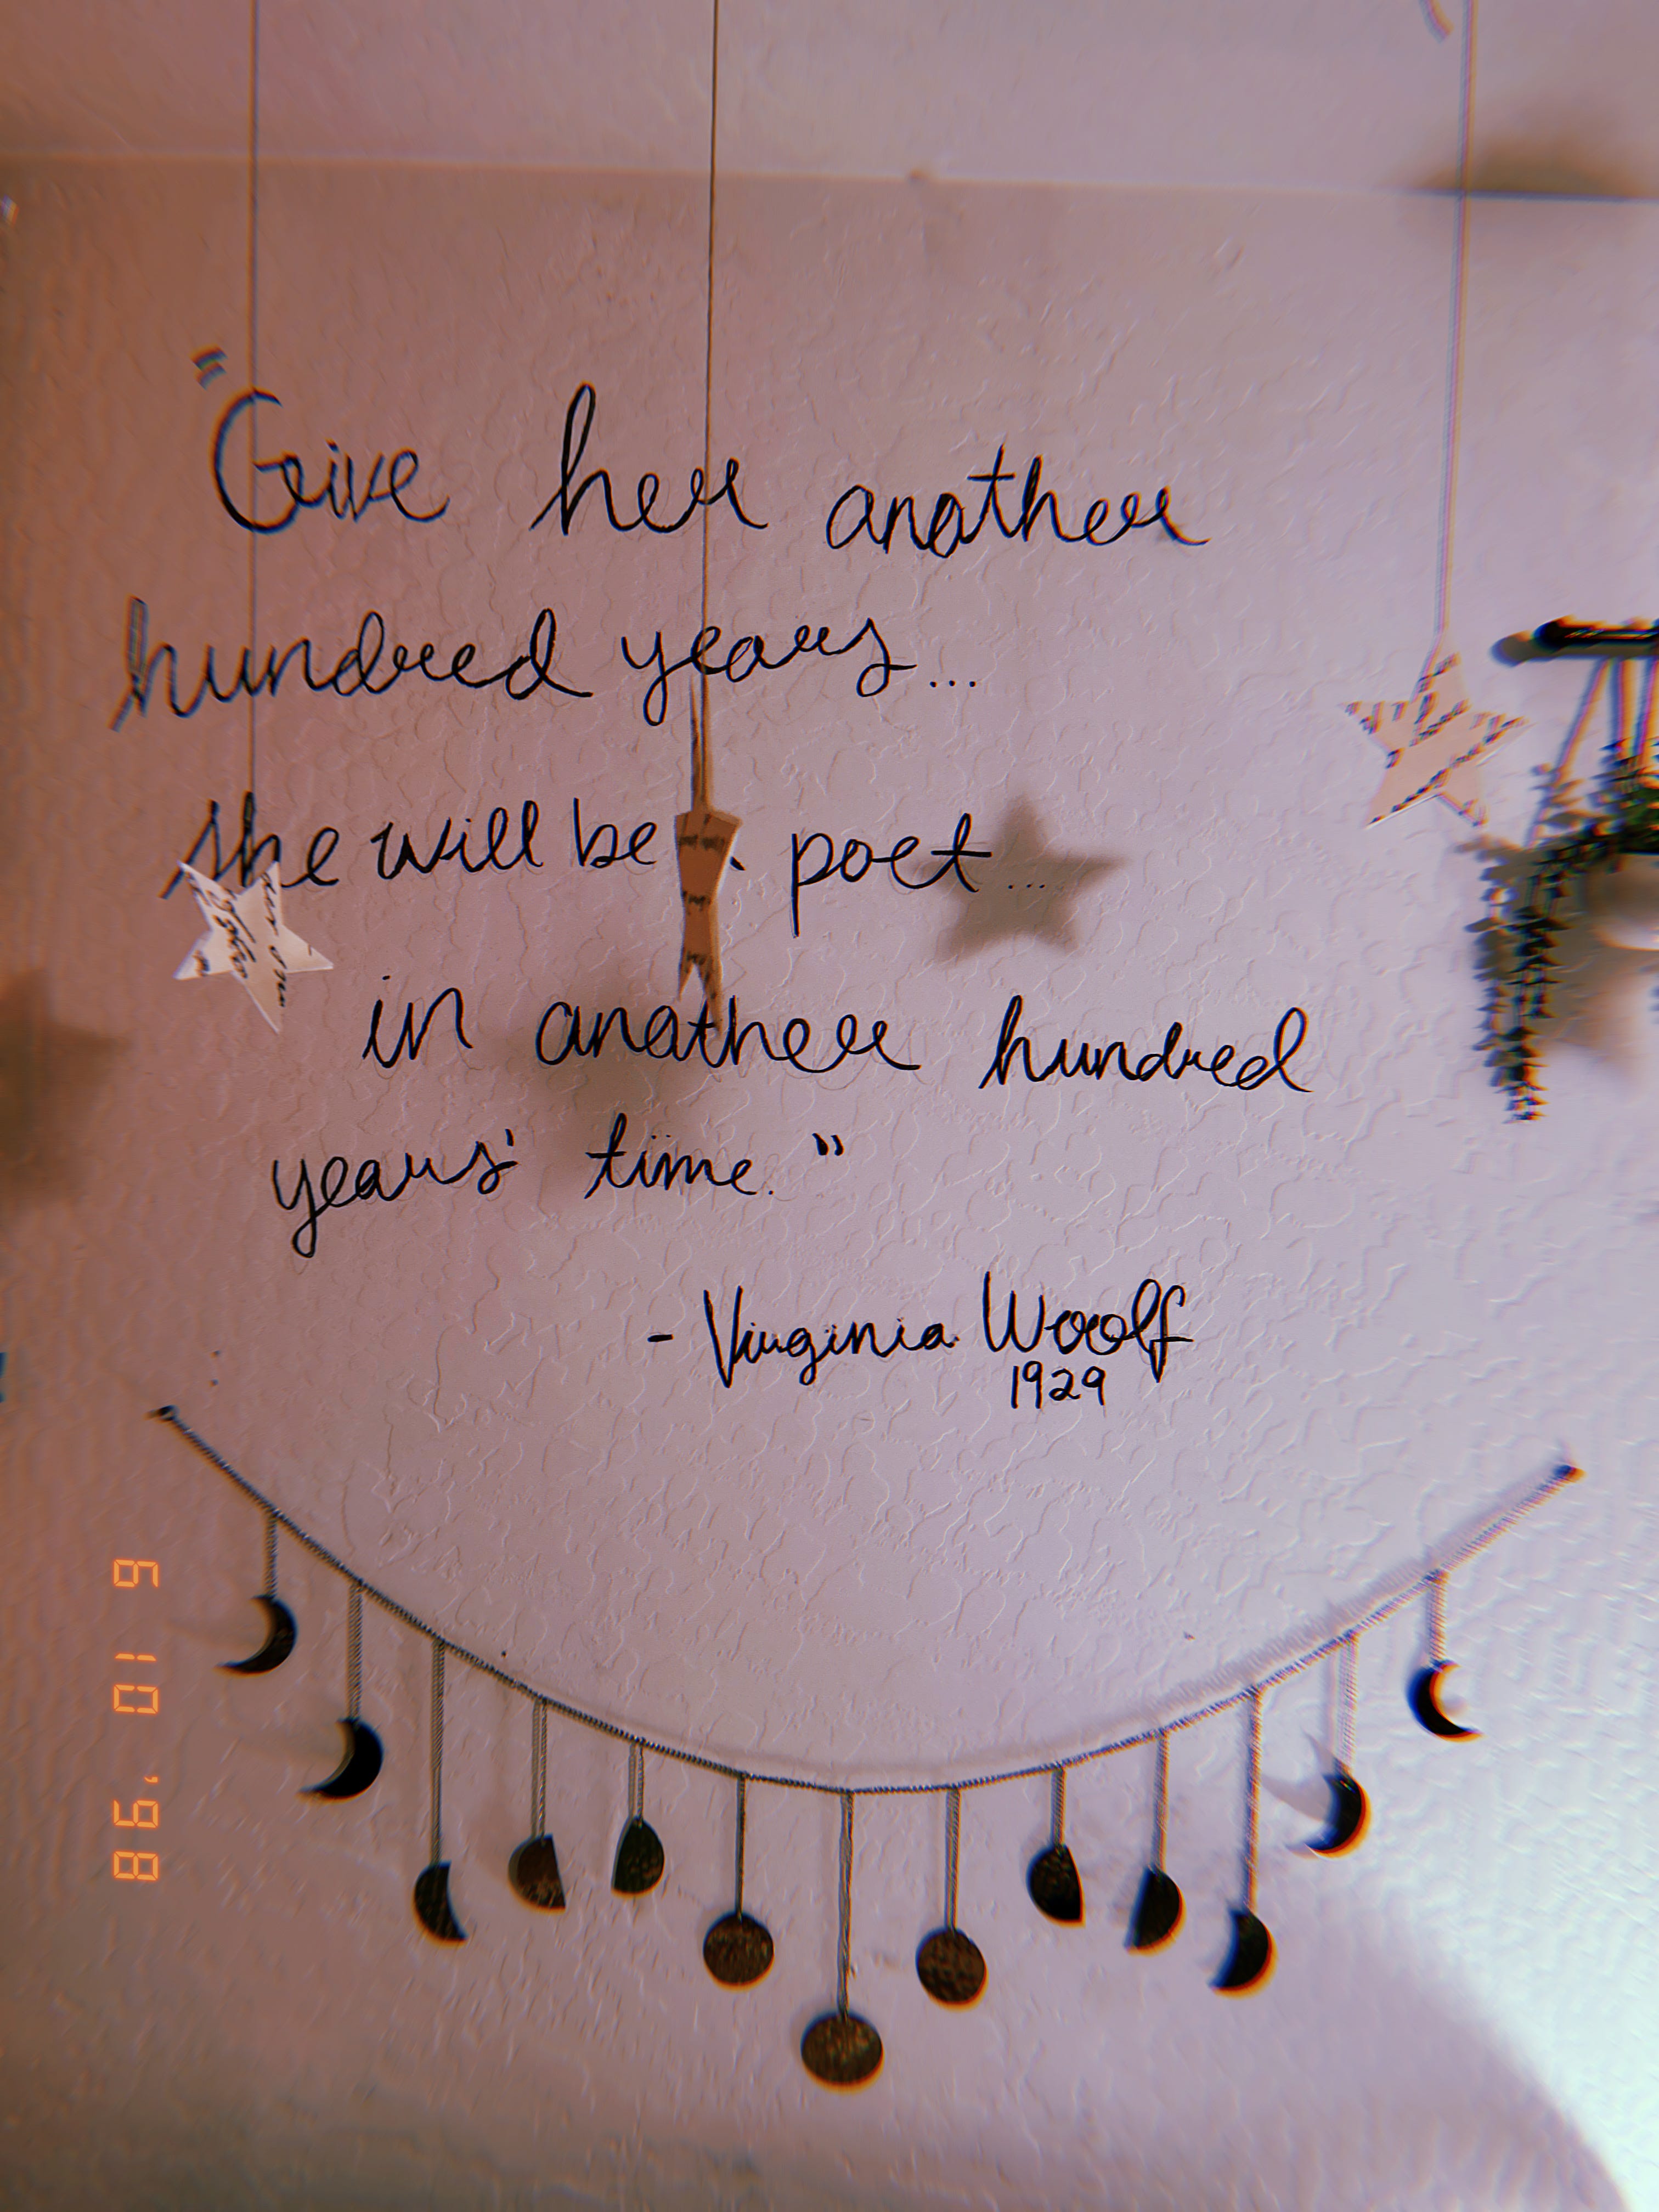 "Give her another
hundred years...
she will be poet...
in another hundred
years' time."
- Virginia Woolf
1929
9 10 '98